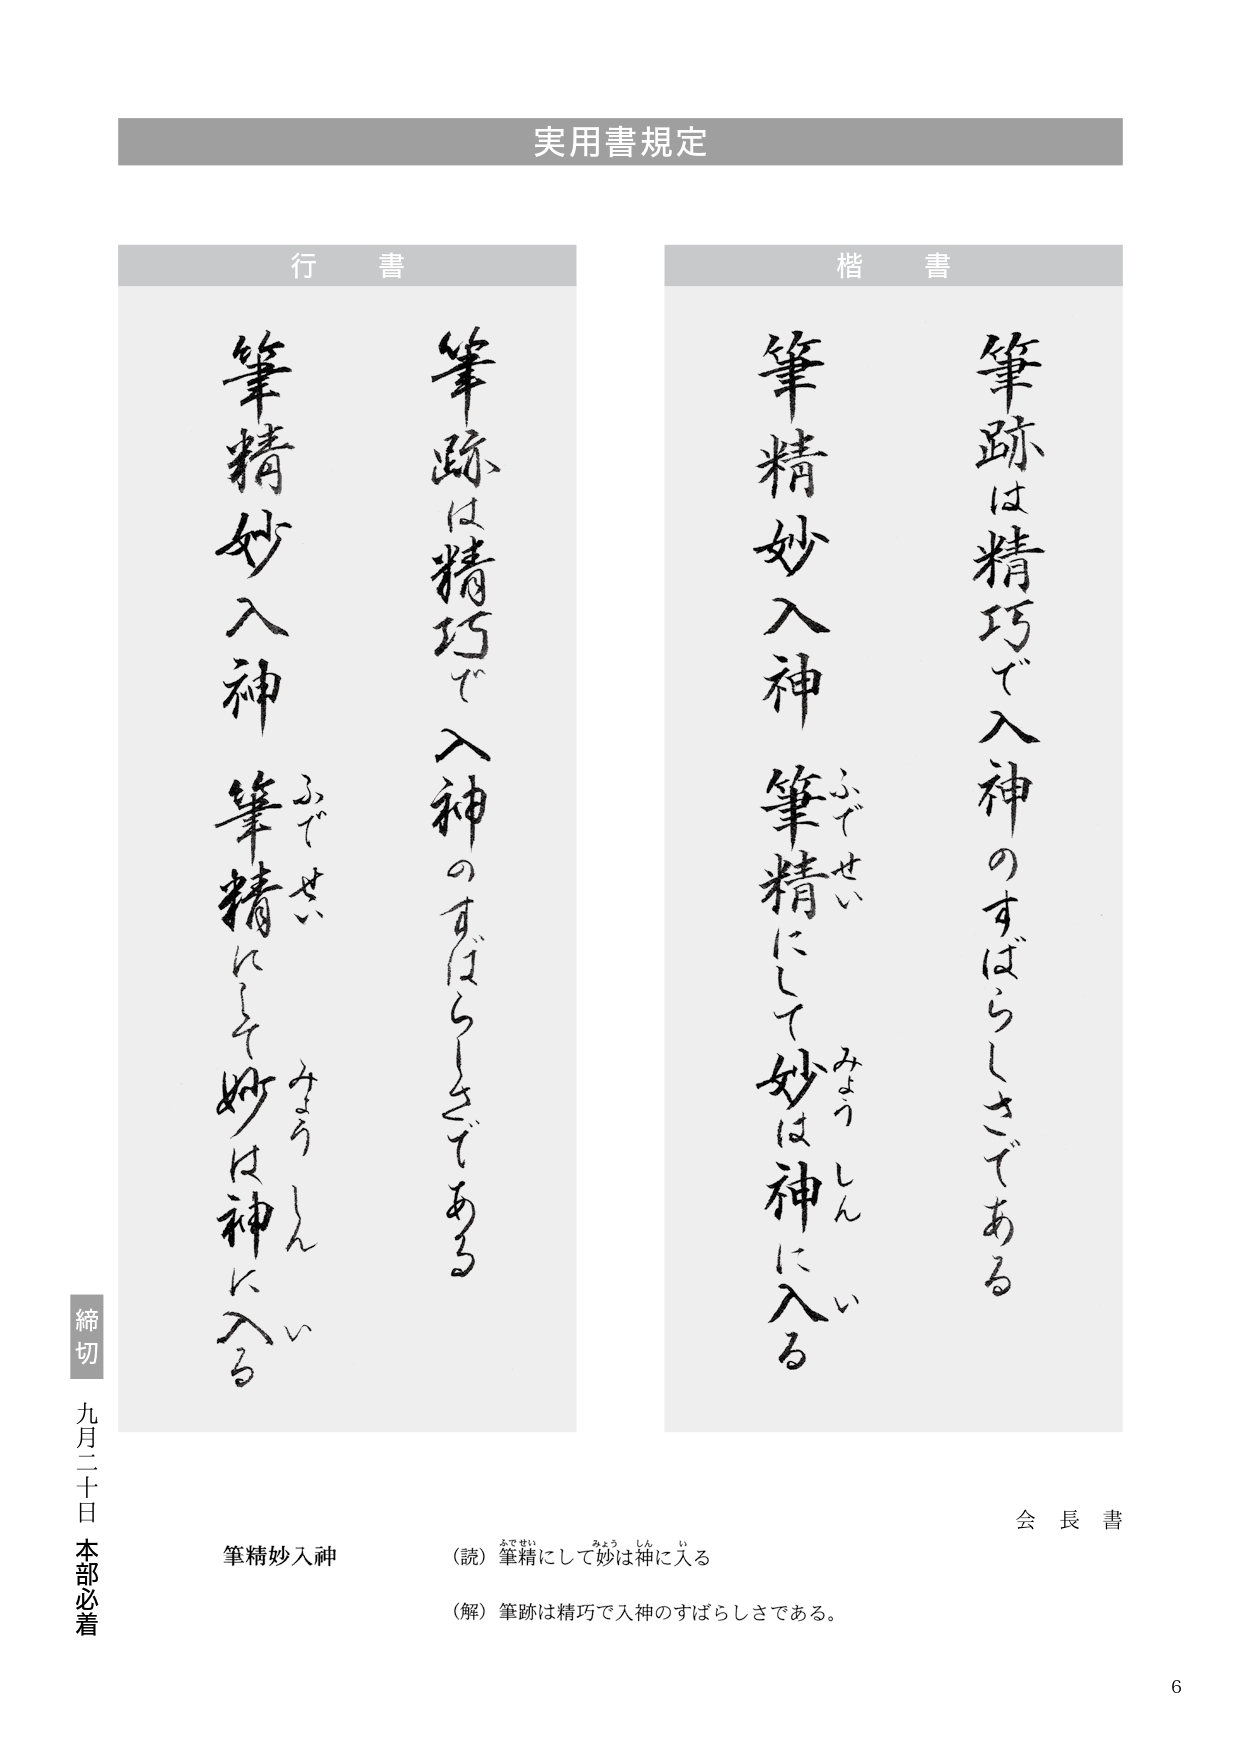 実用書規定
楷書
筆跡は精巧で入神のすばらしさである
筆精妙入神 筆精にして妙は神に入る
ふでせい みょう しん い
行書
筆跡は精巧で入神のすばらしさである
筆精妙入神 筆精にして妙は神に入る
ふでせい みょう しん い
締切 九月二十日 本部必着
会長書
筆精妙入神
ふでせい みょう しん い
(読)筆精にして妙は神に入る
(解)筆跡は精巧で入神のすばらしさである。
6